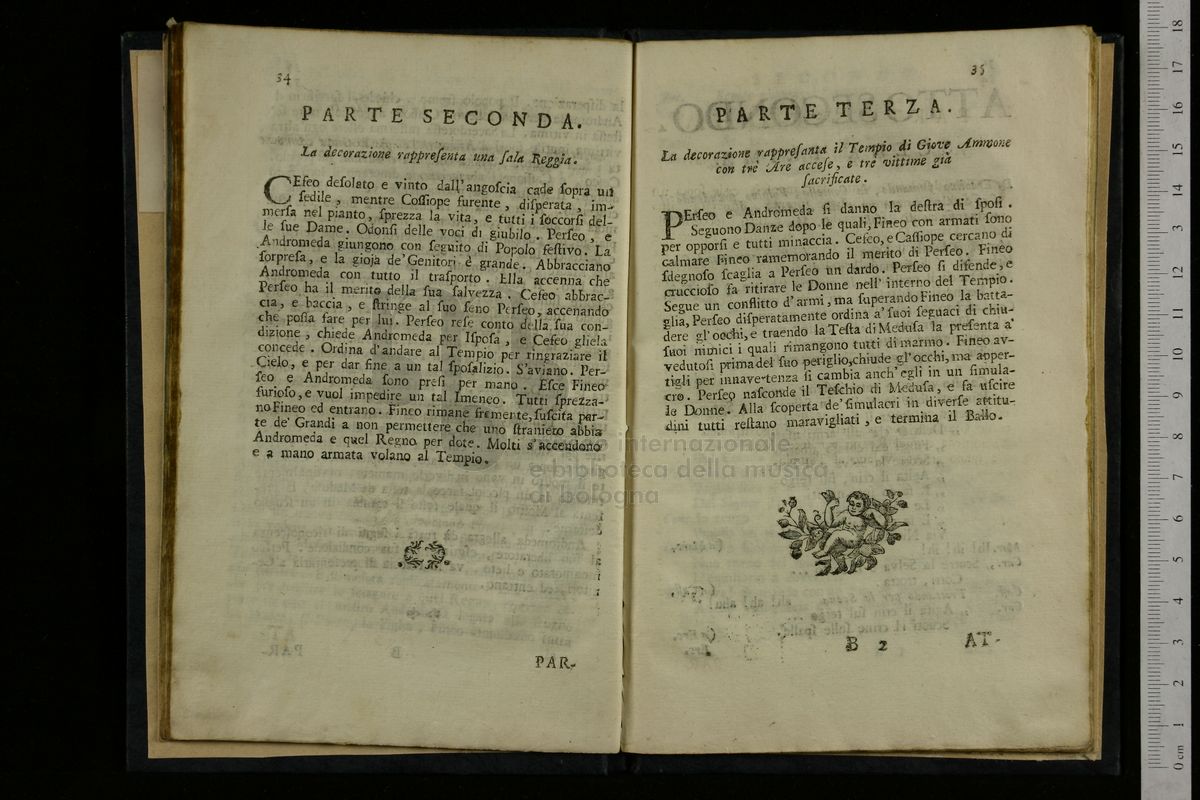 34
PARTE SECONDA.
La decorazione rappreſenta una ſala Reggia.
CEfeo deſolato e vinto dall'angoſcia cade ſopra un
ſedile, mentre Coſſiope furente, diſperata, im-
merſa nel pianto, ſprezza la vita, e tutti i ſoccorſi del-
le ſue Dame. Odonſi delle voci di giubilo. Perſeo, e
Andromeda giungono con ſeguito di Popolo feſtivo. La
ſorpreſa, e la gioja de' Genitori è grande. Abbracciano
Andromeda con tutto il traſporto. Ella accenna che
Perſeo ha il merito della ſua ſalvezza. Cefeo abbrac-
cia, e baccia, e ſtringe al ſuo ſeno Perſeo, accenando
che poſſa fare per lui. Perſeo reſe conto della ſua con-
dizione, chiede Andromeda per Iſpoſa, e Cefeo gliela
concede. Ordina d'andare al Tempio per ringraziare il
Cielo, e per dar fine a un tal ſpoſalizio. S'aviano. Per-
ſeo e Andromeda ſono preſi per mano. Eſce Fineo
furioſo, e vuol impedire un tal Imeneo. Tutti ſprezza-
no Fineo ed entrano. Fineo rimane fremente, ſuſcita par-
te de' Grandi a non permettere che uno ſtraniero abbia
Andromeda e quel Regno per dote. Molti s'accendono
e a mano armata volano al Tempio.
PAR-
35
PARTE TERZA.
La decorazione rappreſanta il Tempio di Giove Ammone
con trè Are acceſe, e trè vittime già
ſacrificate.
PErſeo e Andromeda ſi danno la deſtra di ſpoſi.
Seguono Danze dopo le quali, Fineo con armati ſono
per opporſi e tutti minaccia. Cefeo, e Caſſiope cercano di
calmare Fineo ramemorando il merito di Perſeo. Fineo
ſdegnoſo ſcaglia a Perſeo un dardo. Perſeo ſi difende, e
cruccioſo fa ritirare le Donne nell' interno del Tempio.
Segue un conflitto d'armi, ma ſuperando Fineo la batta-
glia, Perſeo diſperatamente ordina a' ſuoi ſeguaci di chiu-
dere gl' occhi, e traendo la Teſta di Meduſa la preſenta a'
ſuoi nimici i quali rimangono tutti di marmo. Fineo av-
vedutoſi prima del ſuo periglio, chiude gl' occhi, ma apper-
tigli per innavertenza ſi cambia anch' egli in un ſimula-
cro. Perſeo naſconde il Teſchio di Meduſa, e fa uſcire
le Donne. Alla ſcoperta de' ſimulacri in diverſe attitu-
dini tutti reſtano maravigliati, e termina il Ballo.
B 2
AT-
internazionale
e biblioteca della musica
di bologna